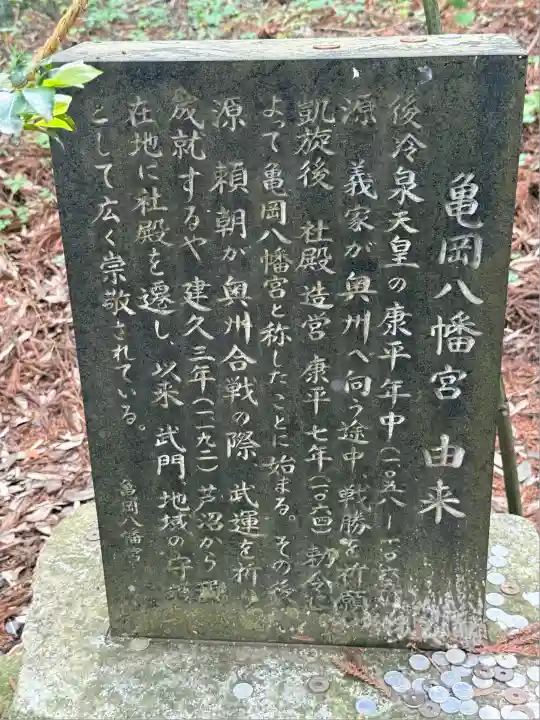 亀岡八幡宮 由来
後冷泉天皇の康平年中(一〇五八ー一〇六
源 義家が奥州へ向う途中、戦勝を祈願
凱旋後 社殿造営 康平七年(一〇六四)勅令に
よって亀岡八幡宮と称したことに始まる。その後
源 頼朝が奥州合戦の際 武運を祈り
成就するや 建久三年(一一九二)芦沼から
在地に社殿を遷し、以来 武門、地域の守
として広く崇敬されている。
亀岡八幡宮